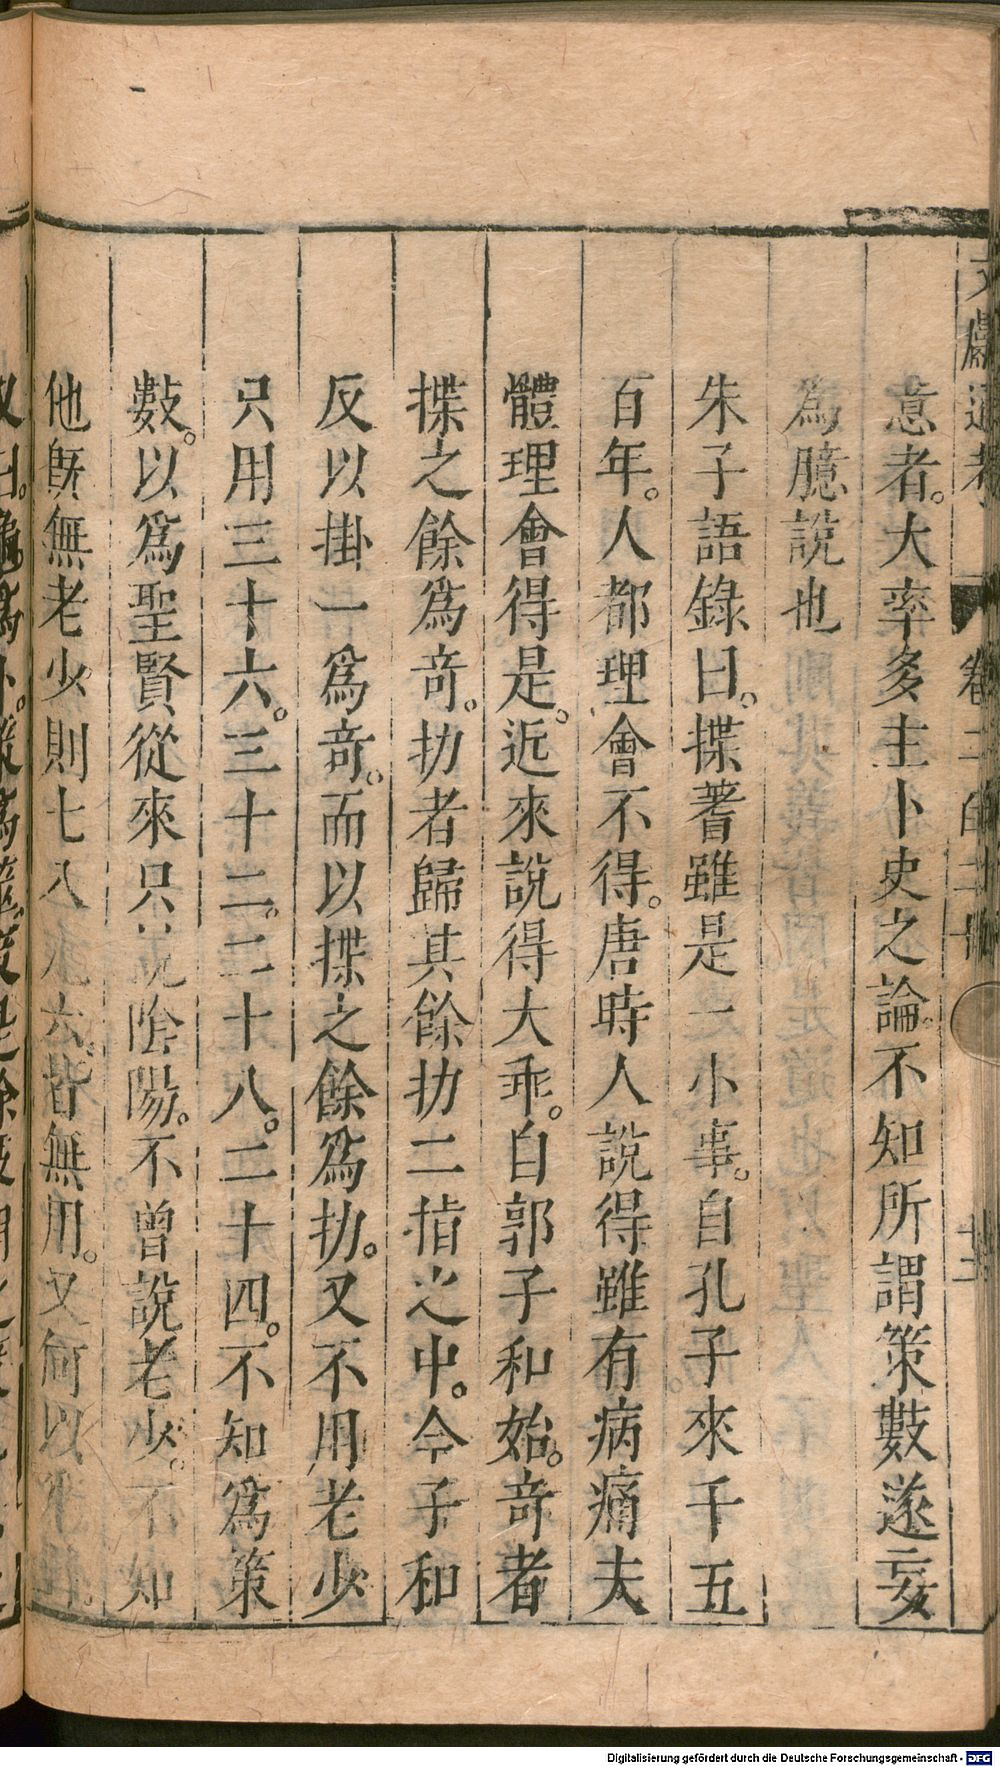 文獻通考 卷二百二十 十三
意者。大率多主卜史之論。不知所謂策數遂妄
為臆說也
朱子語錄曰。揲蓍雖是一小事。自孔子來千五
百年。人都理會不得。唐時人說得雖有病痛夫
體理會得是。近來說得大乖。自郭子和始。奇者
揲之餘爲奇。扐者歸其餘扐二指之中。今子和
反以掛一爲奇。而以揲之餘爲扐。又不用老少
只用三十六。三十二。二十八。二十四。不知爲策
數。以爲聖賢從來只說陰陽。不曾說老少。不知
他旣無老少。則七八九六。皆無用。又何以爲卦。
Digitalisierung gefördert durch die Deutsche Forschungsgemeinschaft - DFG